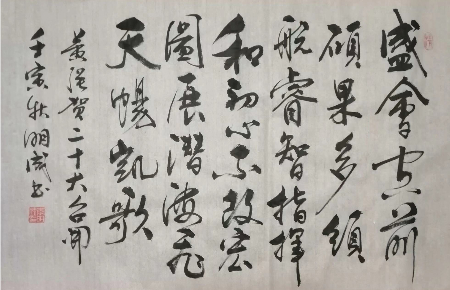 盛會空前
碩果多領
航睿智指揮
和初心不改宏
圖展潛海飛
天暢凱歌
黃混賀二十大召開
壬寅秋湖成书